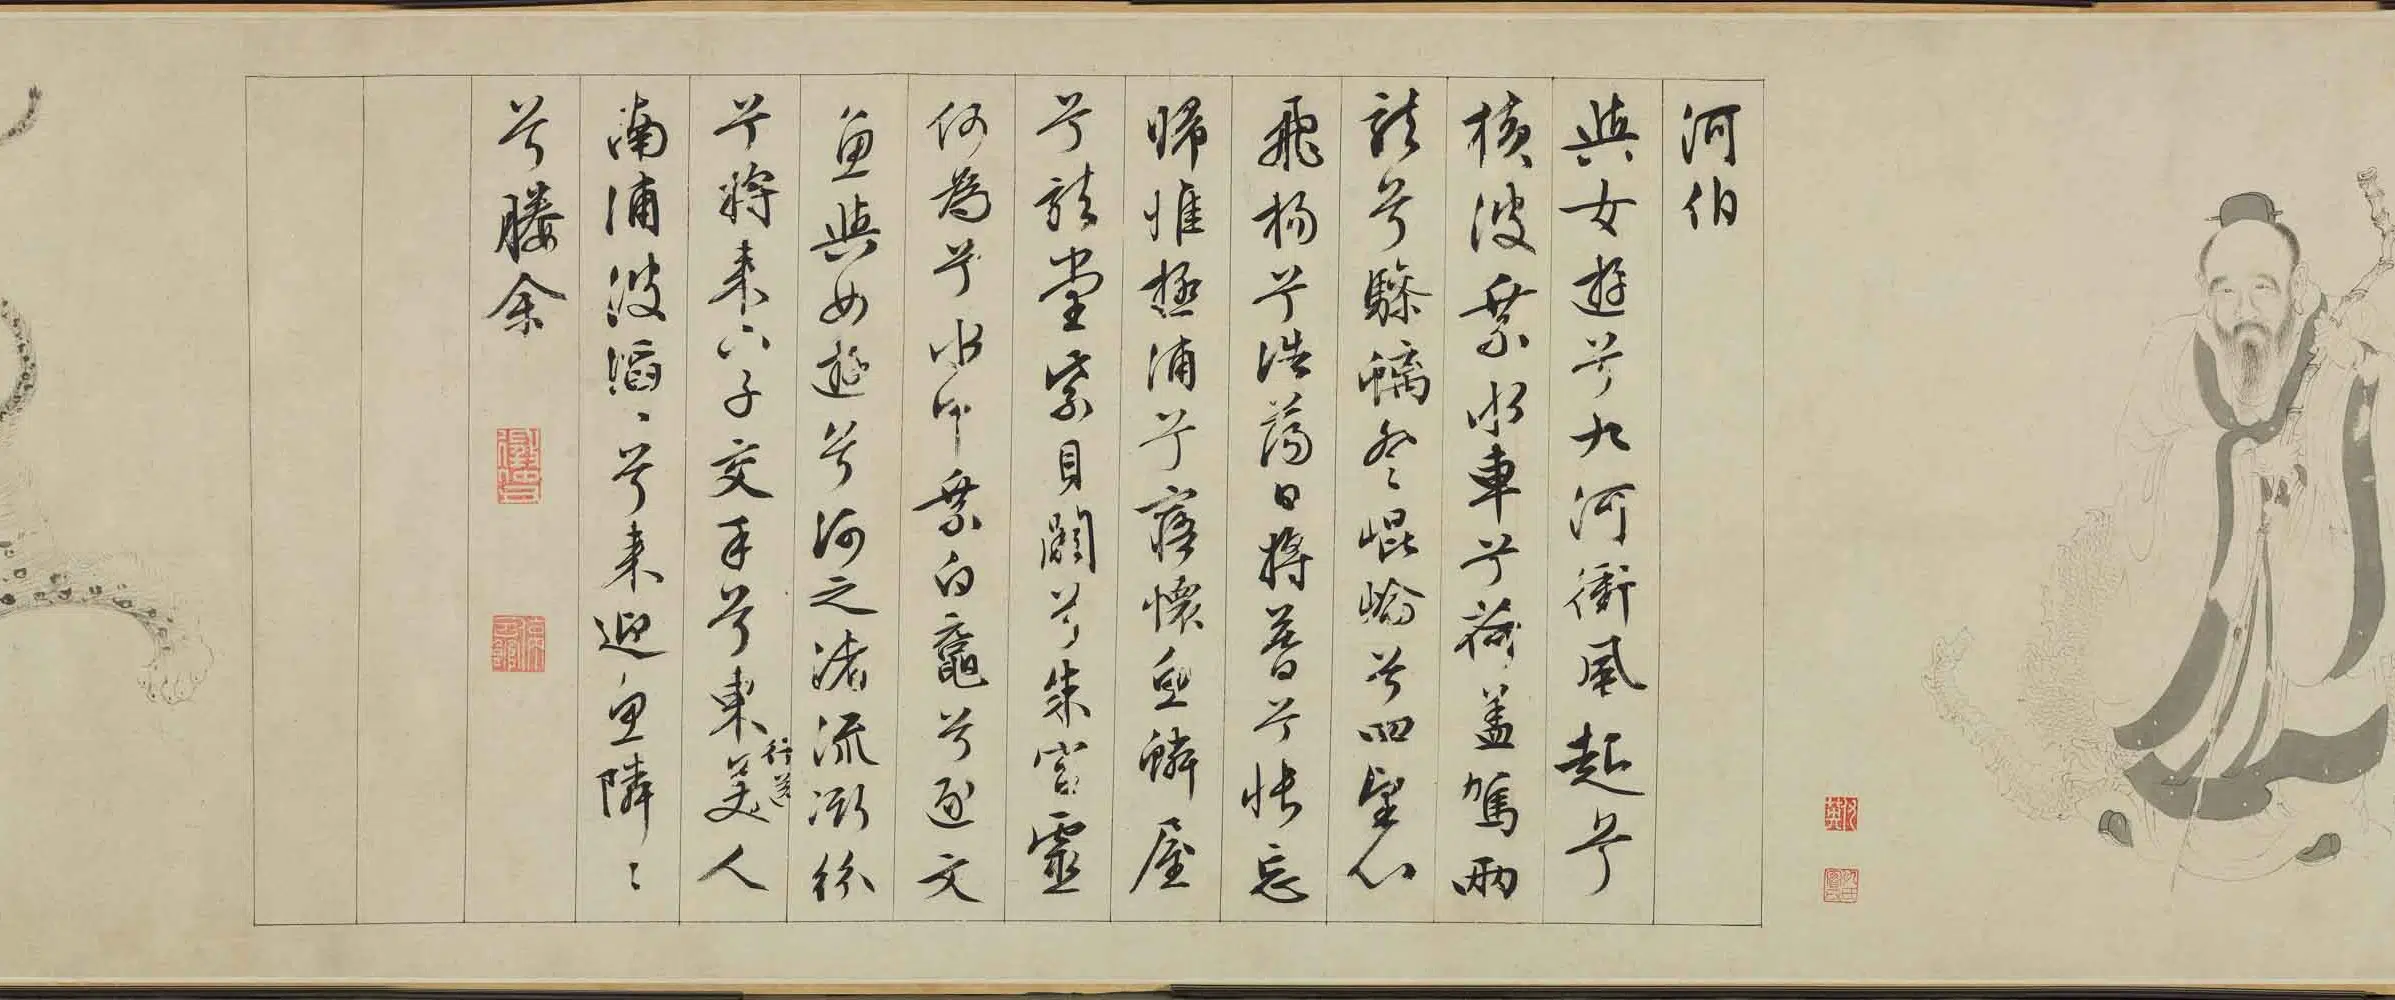 河伯
與女遊兮九河衝風起兮
橫波乘水車兮荷蓋駕兩
龍兮驂螭登崐崘兮四望心
飛揚兮浩蕩日將暮兮悵忘
歸惟極浦兮寤懷魚鱗屋
兮龍堂紫貝闕兮朱宮靈
何為兮水中乘白黿兮逐文
魚與女遊兮河之渚流澌紛
兮將來下子交手兮東行送美人
南浦波滔〻兮來迎魚隣〻
兮媵余